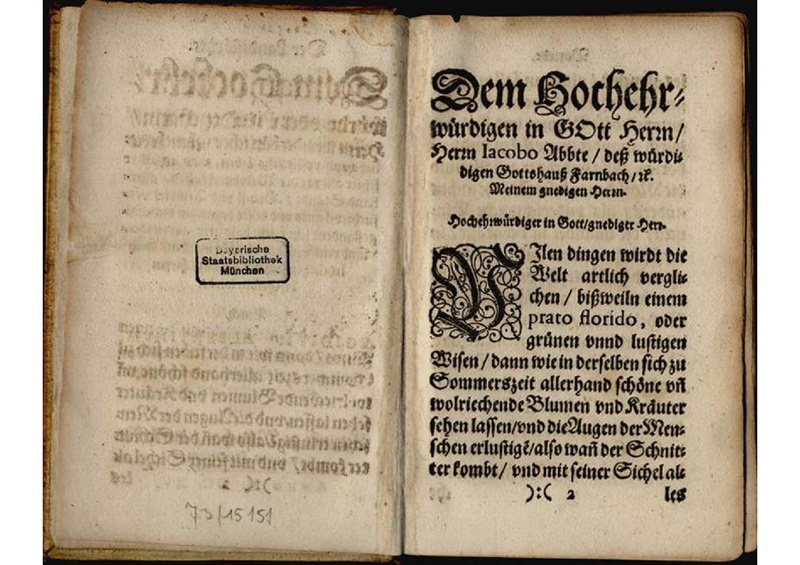 Bayerische
Staatsbibliothek
München
73/15151
Dem Hochehr⸗
würdigen in GOtt Herrn/
Herrn Iacobo Abbte / deß würdi⸗
digen Gottshauß Farnbach / ꝛc.
Meinem gnedigen Herrn.
Hochehrwürdiger in Gott/gnediger Herr.
VIlen dingen wirdt die
Welt artlich vergli⸗
chen / bißweiln einem
prato florido, oder
grünen vnnd lustigen
Wisen / dann wie in derselben sich zu
Sommerszeit allerhand schöne vñ
wolriechende Blumen vnd Kräuter
sehen lassen/vnd die Augen der Men⸗
schen erlustigẽ/also wañ der Schnit⸗
ter kombt/ vnd mit seiner Sichel al⸗
):( 2 les